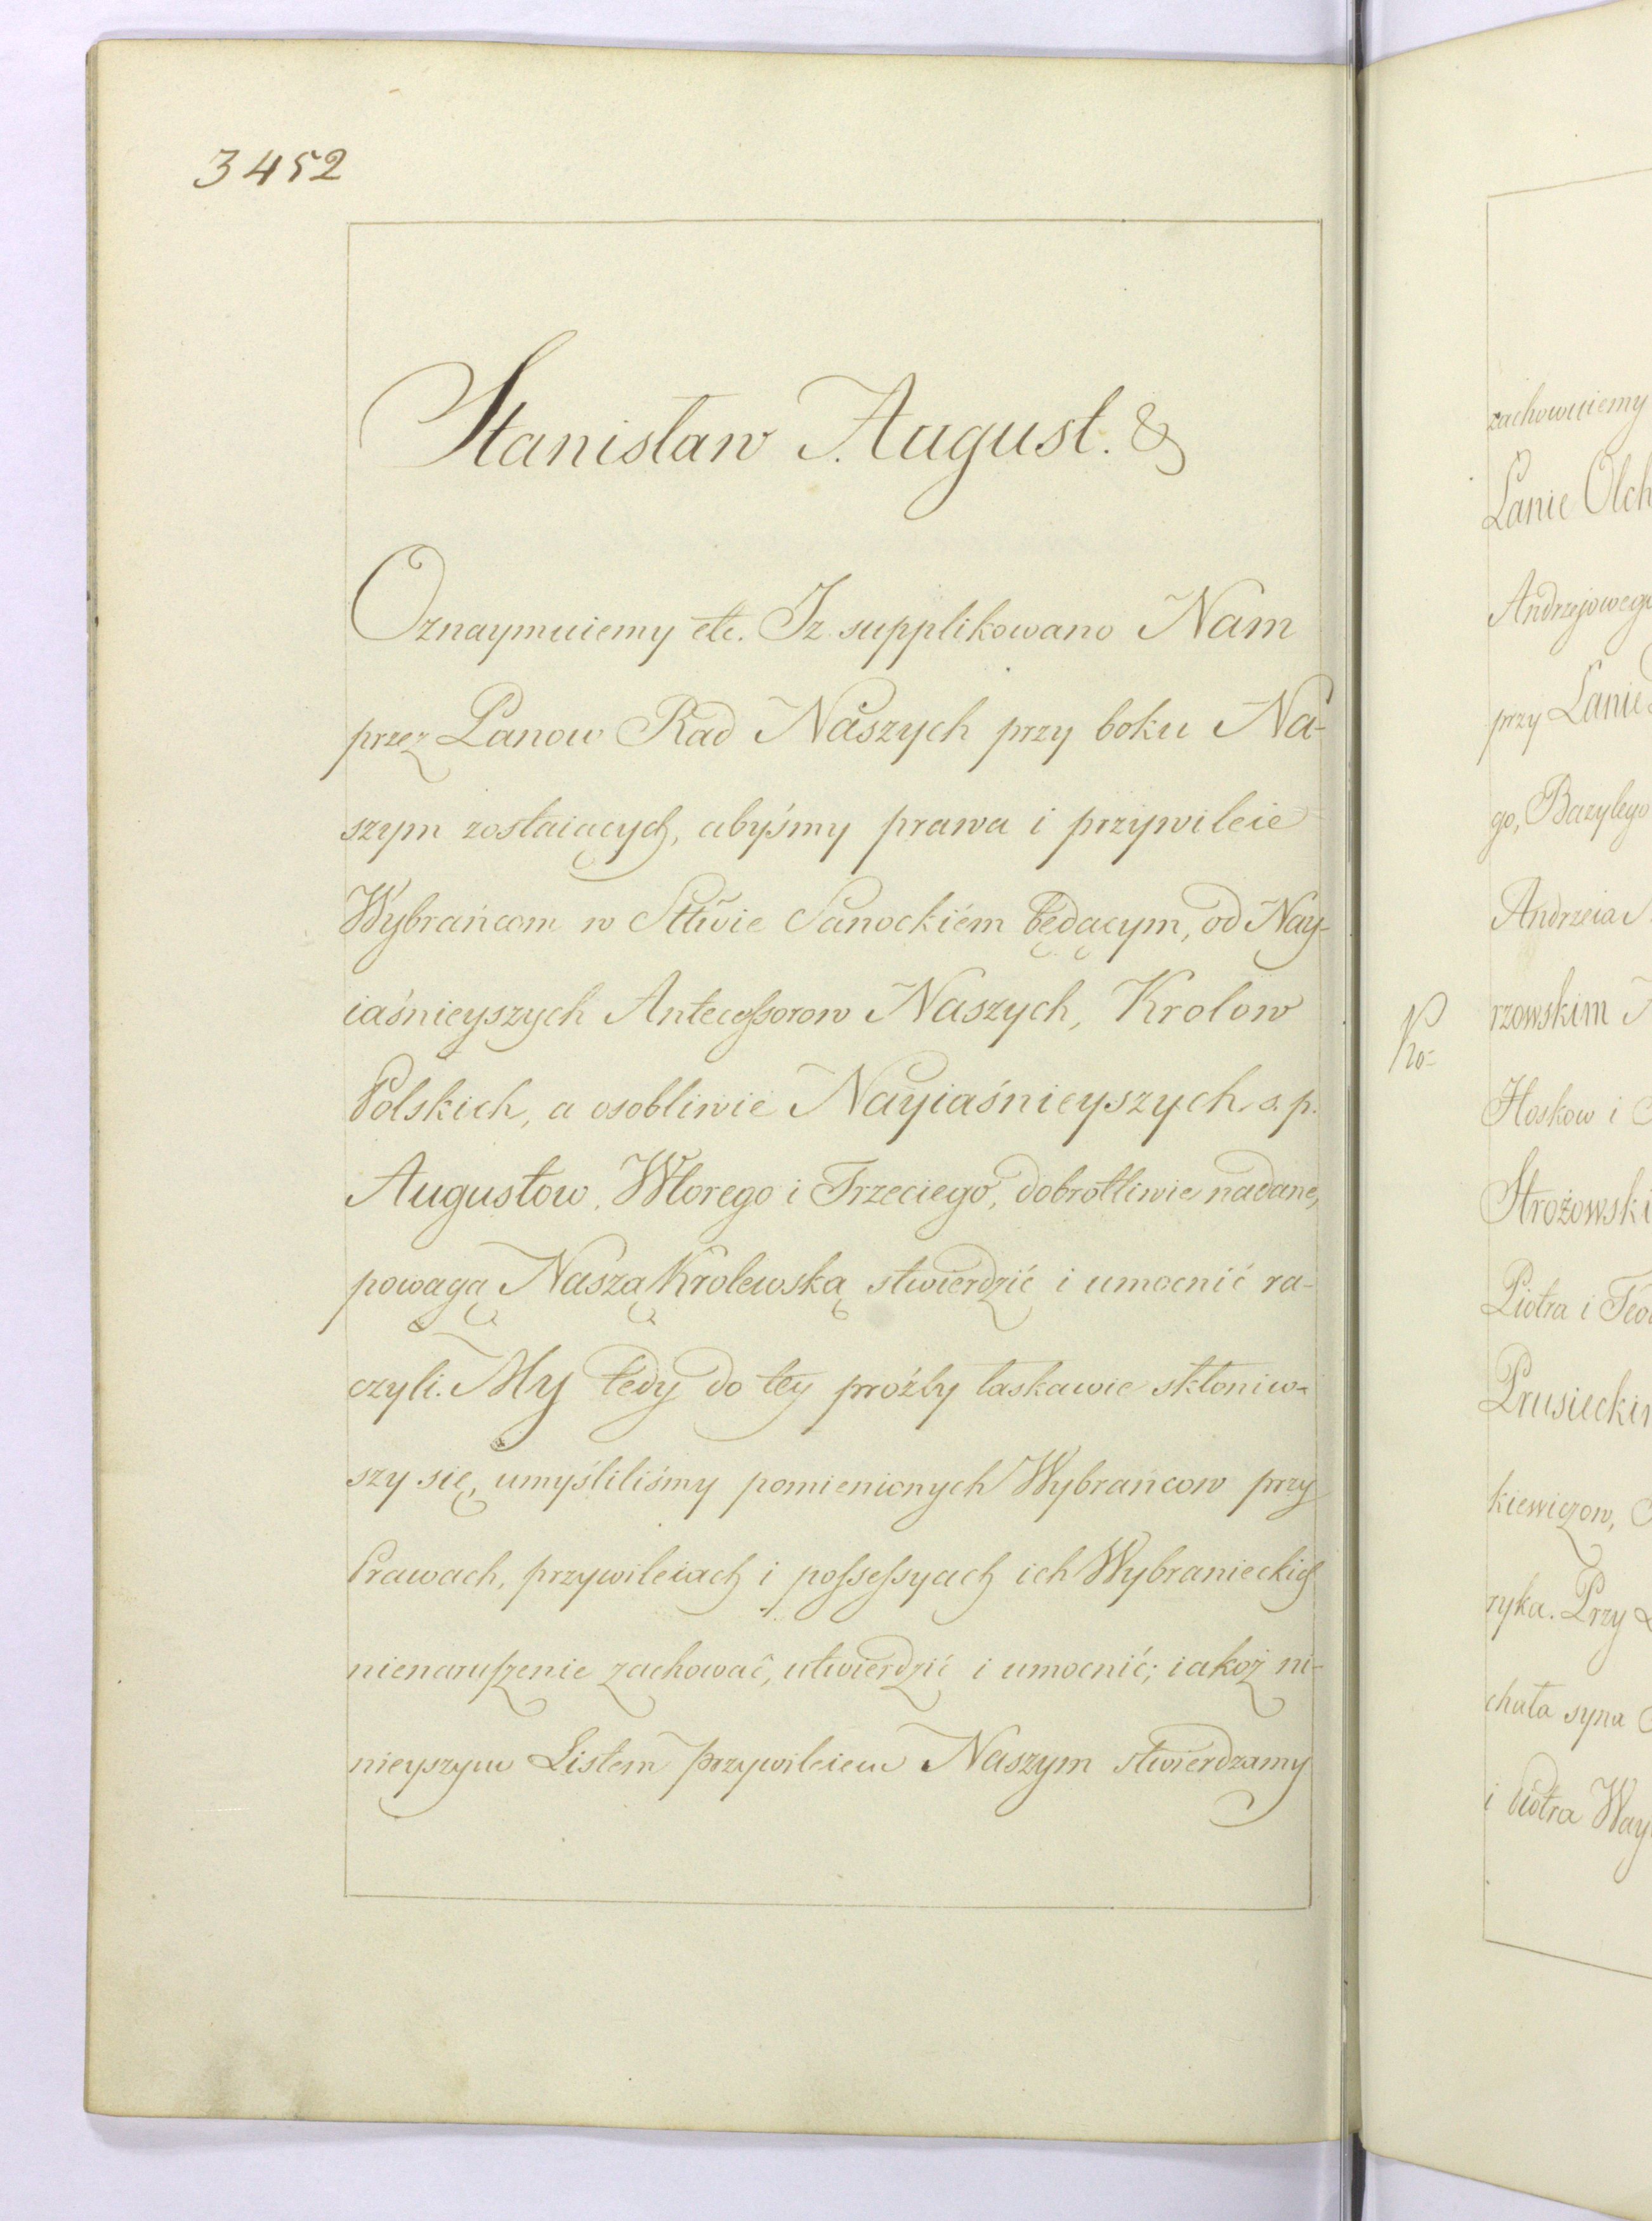 3452
Stanisław August. &
Oznaymuiemy etc. Iz supplikowano Nam
przez Panow Rad Naszych przy boku Na-
szym zostaiących, abyśmy prawa i przywileie
Wybrańcom w Sttwie Sanockiém będącym, od Nay-
iaśnieyszych Antecessorow Naszych, Krolow
Polskich, a osobliwie Nayiaśnieyszych s. p.
Augustow Wtorego i Trzeciego, dobrotliwie nadane,
powagą Naszą Krolewską stwierdzić i umocnić ra-
czyli. My tedy do tey proźby łaskawie skłoniw-
szy się, umyśliliśmy pomienionych Wybrańcow przy
Prawach, przywileiach i possessyach ich Wybranieckich
nienaruszenie zachować, utwierdzić i umocnić; iakoż ni-
nieyszym Listem przywileiem Naszym stwierdzamy
zachowuiemy
Łanie Olch
Andrzejowego
przy Łanie
go, Bazylego
Andrzeia
rzowskim
Hoskow i
Strożowski
Piotra i Teo
Prusieckim
kiewiczow,
ryka. Przy
chała syna
i Piotra Way